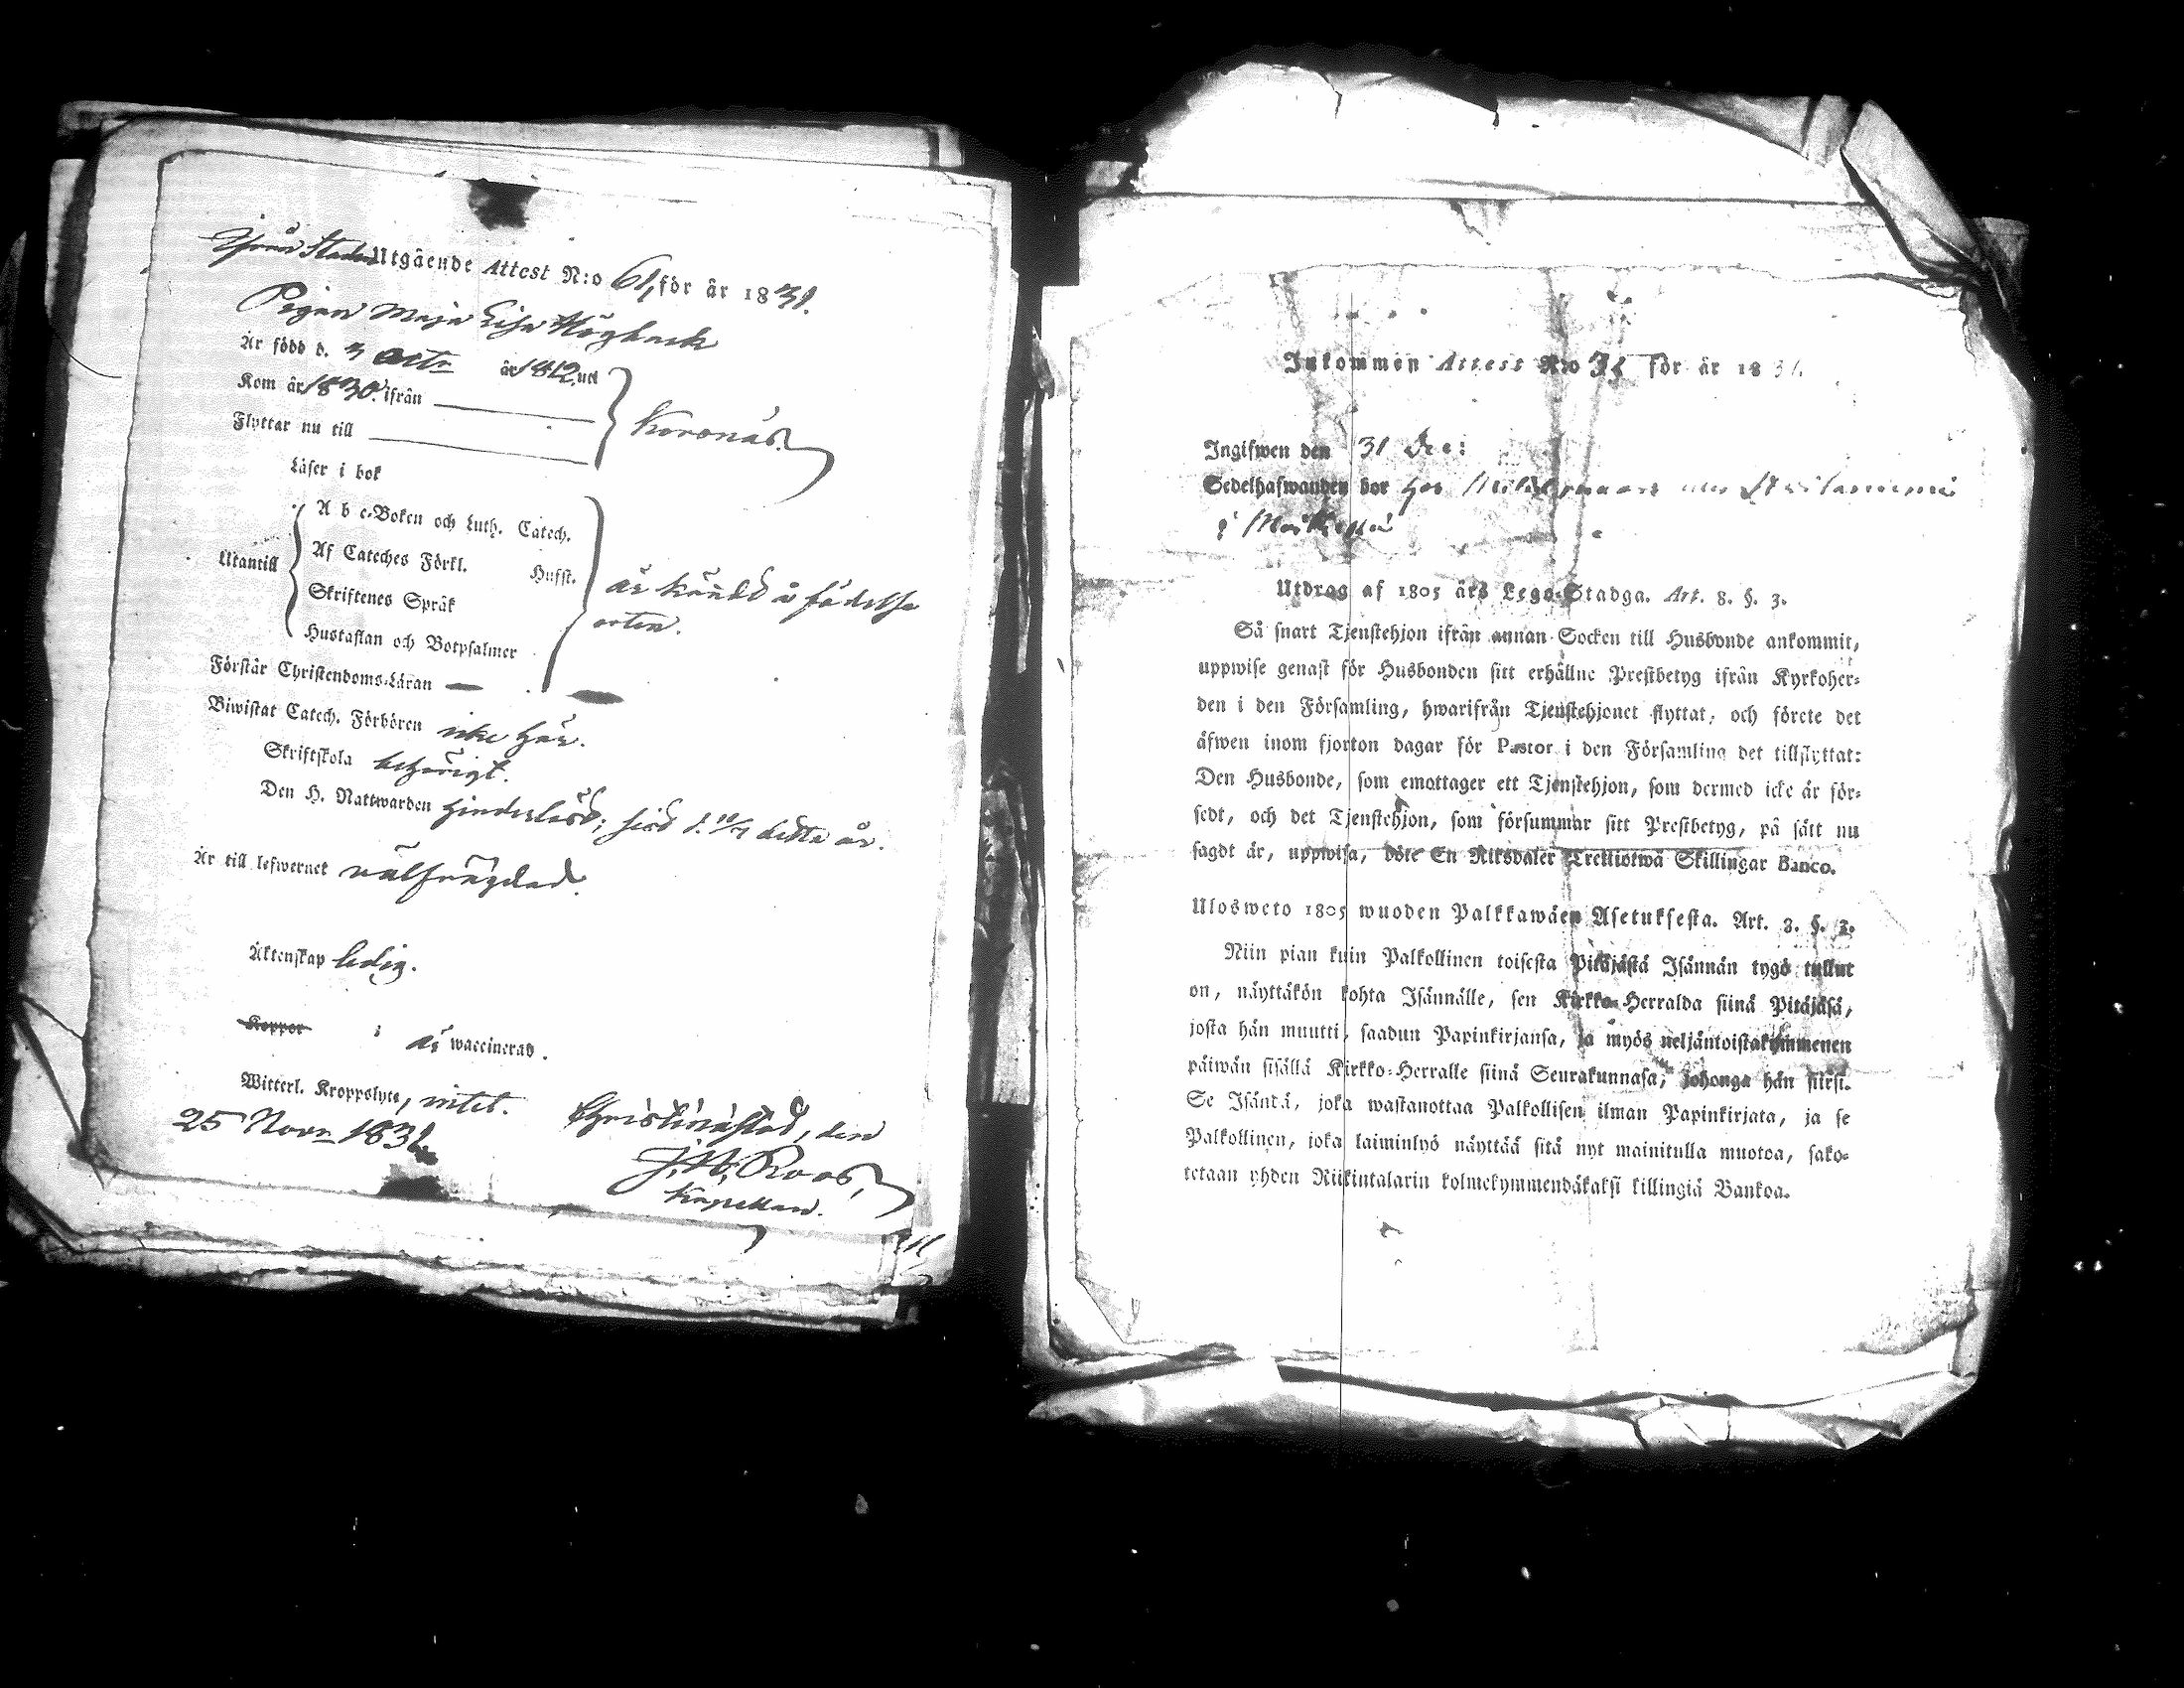 Ifrån Staden Utgående Attest N:o 61, för år 1831.
Pigan Maja Lisa Högback
Är född d. 3 Octr år 1812 uti
Kom år 1830. ifrån
Flyttar nu till
Koronäs.
Läser i bok
Utantill
A b c-Boken och Luth. Catech.
Af Cateches Förkl. Husst.
Skriftenes Språk
Hustaflan och Botpsalmer
är känd å födelse
orten.
Förstår Christendoms-Läran —
Biwistat Catech. Förhören icke här.
Skriftskola behörigt.
Den H. Nattwarden hinderlöst; sist d. detta år.
Är till lefwernet välfrägdad.
Äktenskap ledig.
Koppor i är waccinerad.
Witterl. Kroppslyte, intet. Christinæstad, den
25 Novr 1831.
Roos,
Kapellan.
Inkommen Attest N:o för år 1831.
Ingifwen den 31 Dec:
Sedelhafwanden bor hos
i
Utdrag af 1805 års Lego-Stadga. Art. 8. §. 3.
Så snart Tjenstehjon ifrån annan Socken till Husbonde ankommit,
uppwise genast för Husbonden sitt erhållne Prestbetyg ifrån Kyrkoher-
den i den Församling, hwarifrån Tjenstehjonet flyttat, och förete det
äfwen inom fjorton dagar för Pastor i den Församling det tillflyttat:
Den Husbonde, som emottager ett Tjenstehjon, som dermed icke är för-
sedt, och det Tjenstehjon, som försummar sitt Prestbetyg, på sätt nu
sagdt är, uppwisa, böte En Riksdaler Trettiotwå Skillingar Banco.
Ulosweto 1805 wuoden Palkkawäen Asetuksesta. Art. 8. §. 3.
Niin pian kuin Palkollinen toisesta Pitäjästä Isännän tygö tullut
on, näyttäkön kohta Isännälle, sen Kirkko-Herralda siinä Pitäjäsä,
josta hän muutti, saadun Papinkirjansa, ja myös neljäntoistakymmenen
päiwän sisällä Kirkko-Herralle siinä Seurakunnasa, johonga hän siirsi.
Se Isäntä, joka wastanottaa Palkollisen ilman Papinkirjata, ja se
Palkollinen, joka laiminlyö näyttää sitä nyt mainitulla muotoa, sako-
tetaan yhden Riikintalarin kolmekymmendäkaksi killingiä Bankoa.